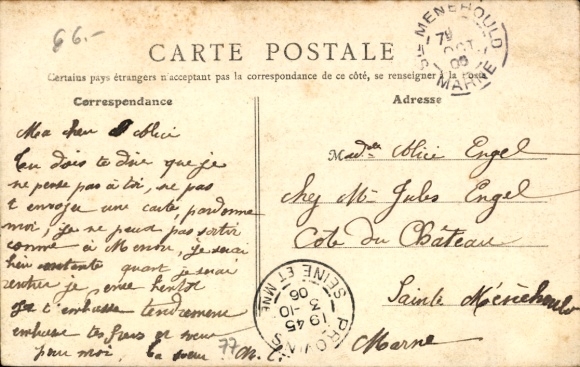 66.-
CARTE POSTALE
Certains pays étrangers n'acceptant pas la correspondance de ce côté, se renseigner à la Poste
Correspondance
Adresse
Ste MENEHOULD
7
OCT
06
MARNE
Ma cher Alice
Tu dois te dire que je
ne pense pas à toi, ne pas
t envoyer une carte, pardonne
moi, je ne peux pas sortir
comme à Menou, je serai
bien contente quant je serai
rentrer je pense bientot
je t'embrasse tendrement
embrasse tes freres et soeur
pour moi, ta soeur M.
77
Madelle Alice Engel
chez Mr Jules Engel
Cote du Château
Sainte Ménéhould
Marne
PROVINS
19 45
3 -10
06
SEINE ET MNE